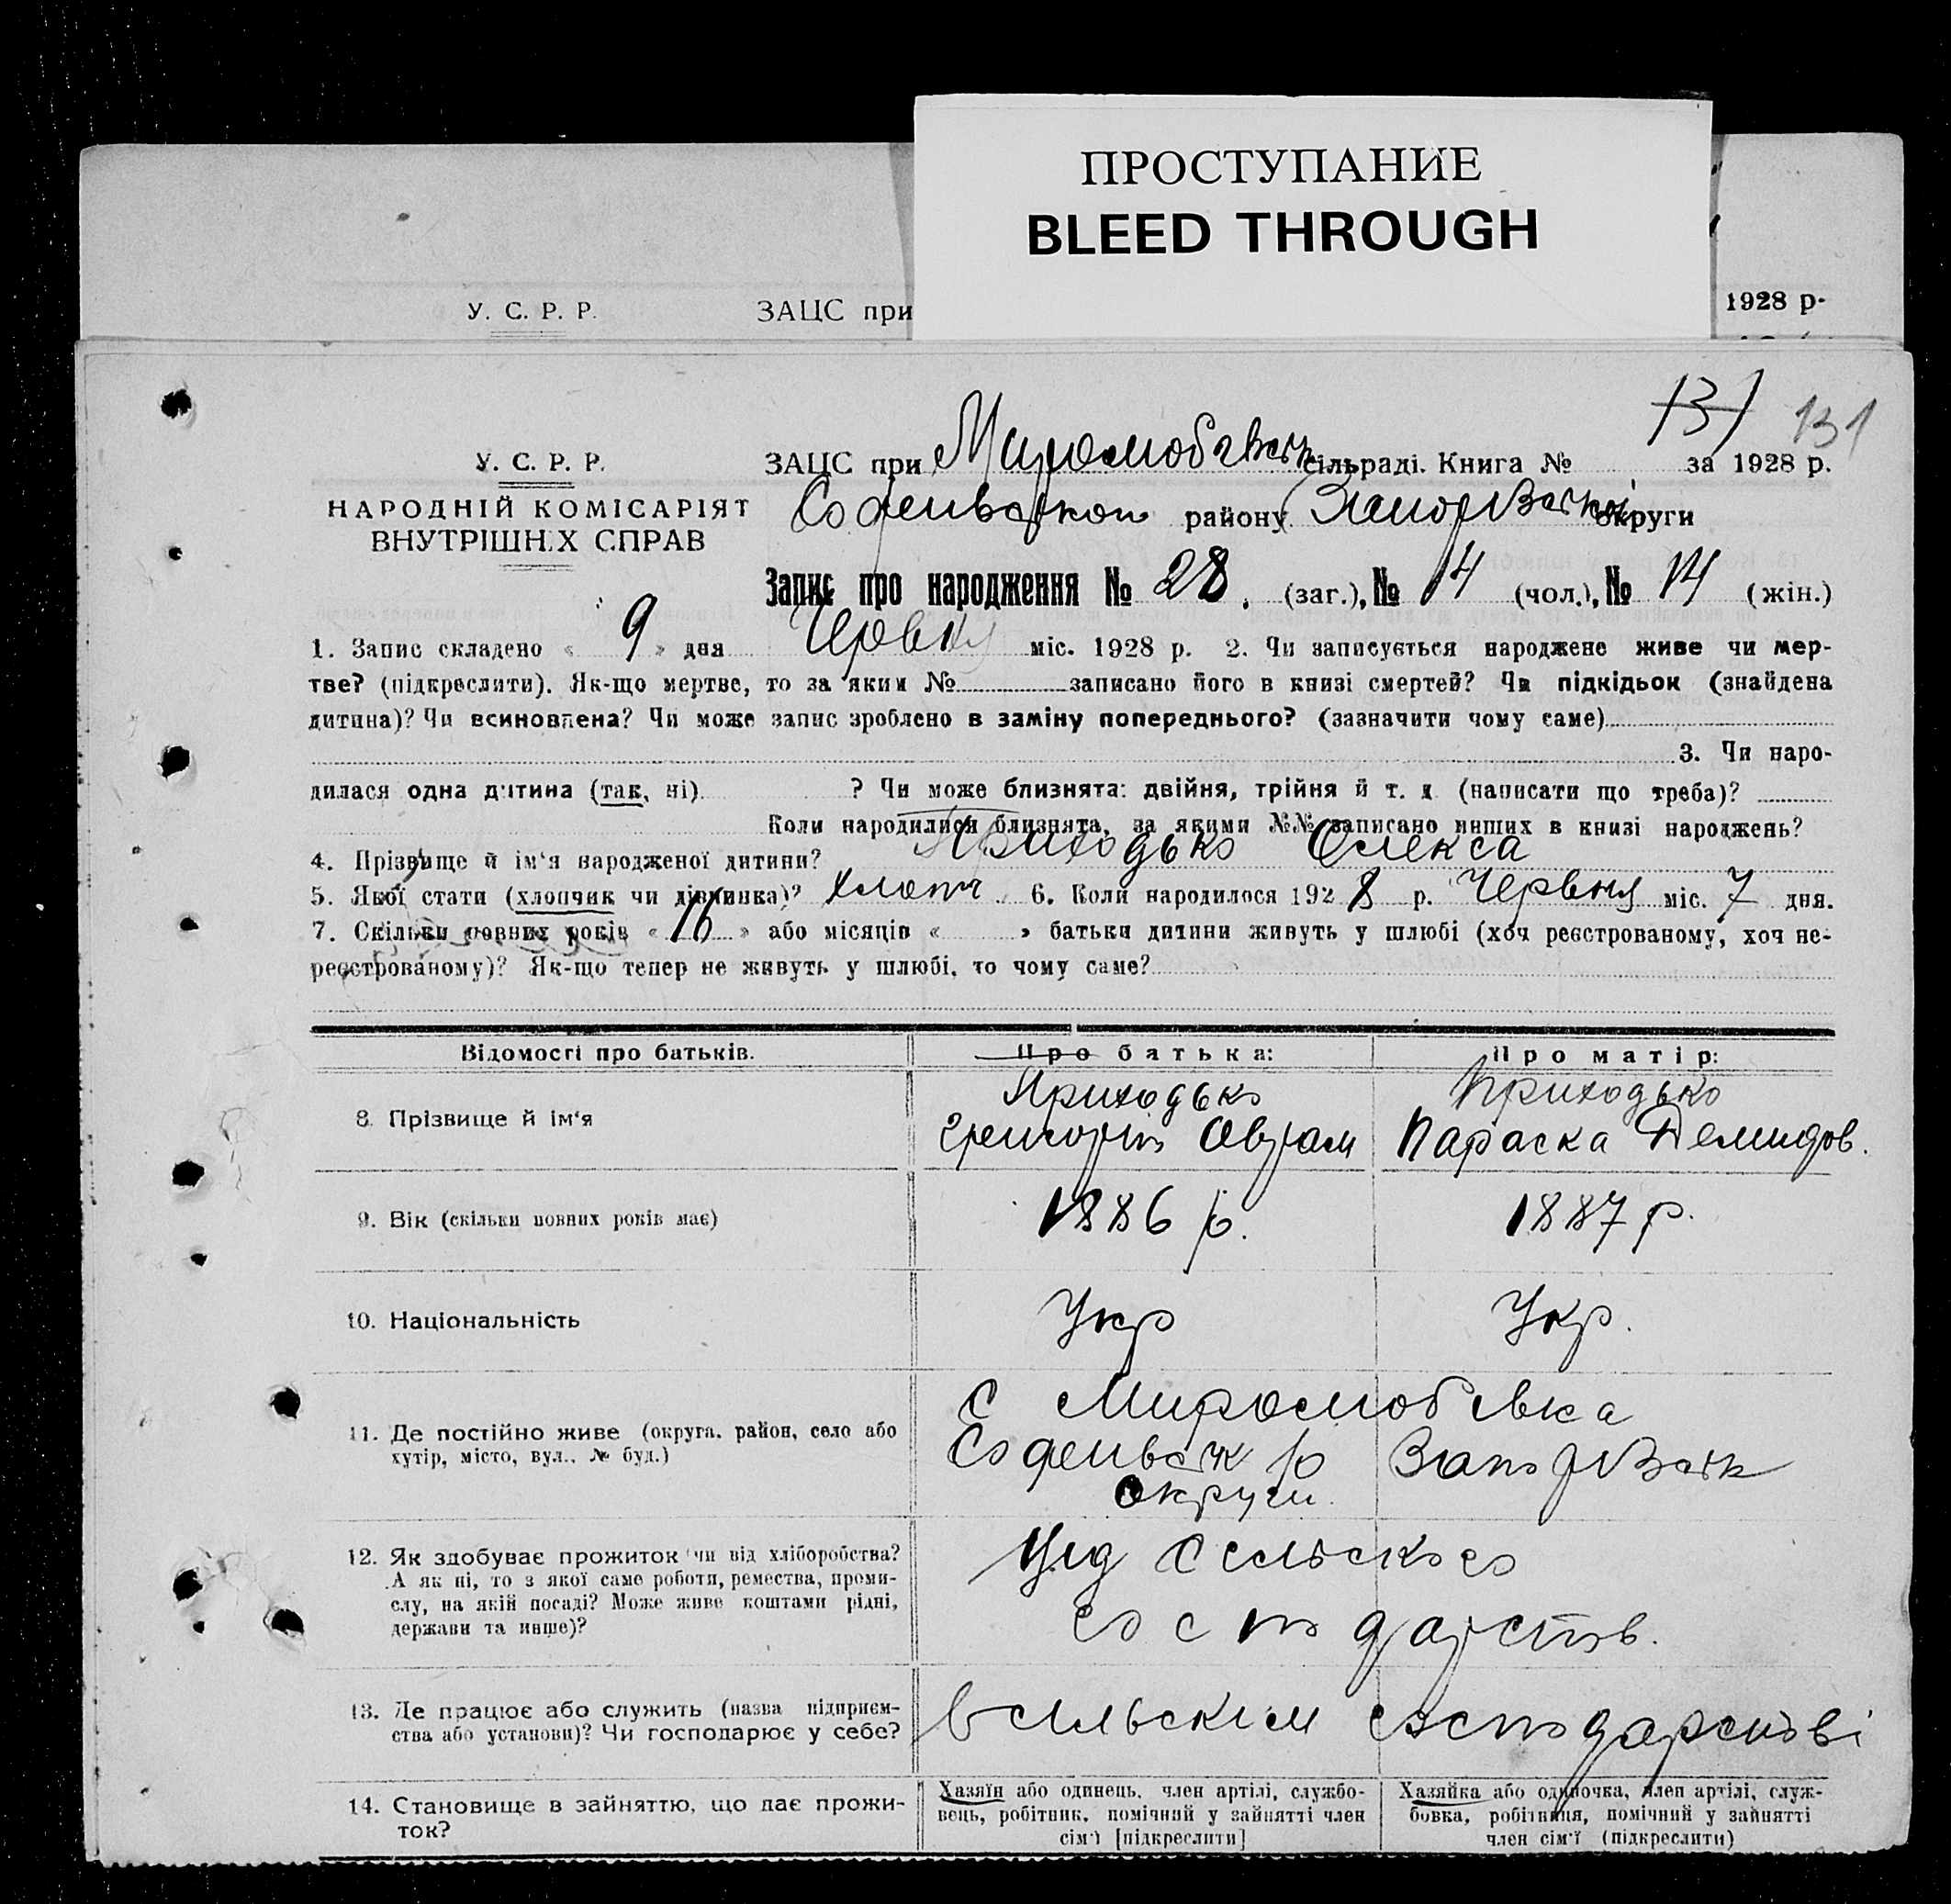 ПРОСТУПАНИЕ
BLEED THROUGH
У. С. Р. Р. ЗАЦС при 1928 р.
131 131
У. С. Р. Р. ЗАЦС при Миролюбівськ сільраді. Книга № за 1928 р.
НАРОДНІЙ КОМІСАРІЯТ
ВНУТРІШНІХ СПРАВ
району округи
Запис про народження № 28. (заг.), № 14 (чол.), № 14 (жін.)
1. Запис складено « 9 » дня Червня міс. 1928 р. 2. Чи записується народжене живе чи мер-
тве? (підкреслити). Як-що мертве, то за яким № записано його в книзі смертей? Чи підкідьок (знайдена
дитина)? Чи всиновлена? Чи може запис зроблено в заміну попереднього? (зазначити чому саме)
3. Чи наро-
дилася одна дитина (так, ні) ? Чи може близнята: двійня, трійня й т. д. (написати що треба)?
Коли народилися близнята, за якими №№ записано инших в книзі народжень?
4. Прізвище й ім‘я народженої дитини? Приходько Олекса
5. Якої стати (хлопчик чи дівчинка)? хлопч 6. Коли народилося 1928 р. Червня міс. 7 дня.
7. Скільки повних років « 16 » або місяців « » батьки дитини живуть у шлюбі (хоч реєстрованому, хоч не-
реєстрованому)? Як-що тепер не живуть у шлюбі, то чому саме?
Відомості про батьків. Про батька: Про матір:
8. Прізвище й ім‘я
Приходько Приходько
Григорій Оврам Параска Демидов.
9. Вік (скільки повних років має) 1886 р. 1887 р.
10. Національність Укр Укр.
11. Де постійно живе (округа, район, село або
хутір, місто, вул., № буд.)
С Миролюбівка
р
округи
12. Як здобуває прожиток чи від хліборобства?
А як ні, то з якої саме роботи, ремества, проми-
слу, на якій посаді? Може живе коштами рідні,
держави та инше)?
Від Сельского
господарств.
13. Де працює або служить (назва підприєм-
ства або установи)? Чи господарює у себе?
В сильским господарстві
14. Становище в зайняттю, що дає прожи-
ток?
Хазяїн або одинець, член артілі, службо-
вець, робітник, помічний у зайнятті член
сім‘ї [підкреслити]
Хазяйка або одиночка, член артілі, служ-
бовка, робітниця, помічний у зайнятті
член сім‘ї (підкреслити)